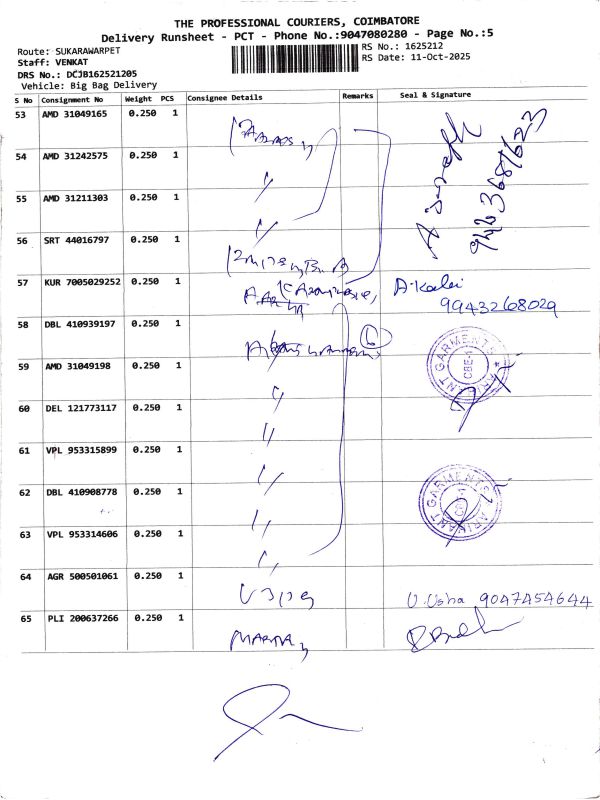 THE PROFESSIONAL COURIERS, COIMBATORE
Delivery Runsheet - PCT - Phone No.:9047080280 - Page No.:5
Route: SUKARAWARPET
RS No.: 1625212
Staff: VENKAT
RS Date: 11-Oct-2025
DRS No.: DCJB162521205
Vehicle: Big Bag Delivery
S No Consignment No Weight PCS Consignee Details Remarks Seal & Signature
53 AMD 31049165 0.250 1
54 AMD 31242575 0.250 1
55 AMD 31211303 0.250 1
56 SRT 44016797 0.250 1
57 KUR 7005029252 0.250 1 A.Kalai
9943268029
58 DBL 410939197 0.250 1
59 AMD 31049198 0.250 1
60 DEL 121773117 0.250 1
61 VPL 953315899 0.250 1
62 DBL 410908778 0.250 1
63 VPL 953314606 0.250 1
64 AGR 500501061 0.250 1 U.Usha 9047454644
65 PLI 200637266 0.250 1
ARIHANT GARMENTS
CBE-1
ARIHANT GARMENTS
CBE-1